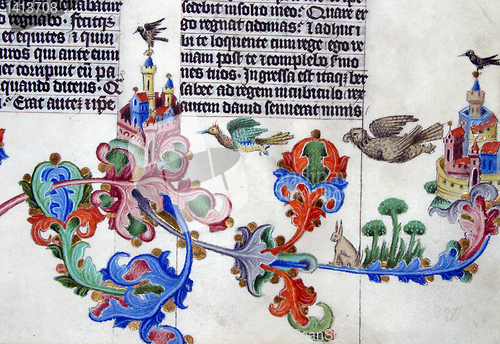 1413708
o regnabo: fecitq
et equites & quin
qui ante eum
compuit eū pa
quando dicens: Q
Erat autez ipe
sedebit in solio meo: Quare er
go regnat adonias: Et adhuc i
bi te loquente cum rege: ego ve
niam post te et complebo smo
nes tuos. Ingressa est itaqz ber
sabee ad regem in cubiculo rex
autem david senuerat nimis